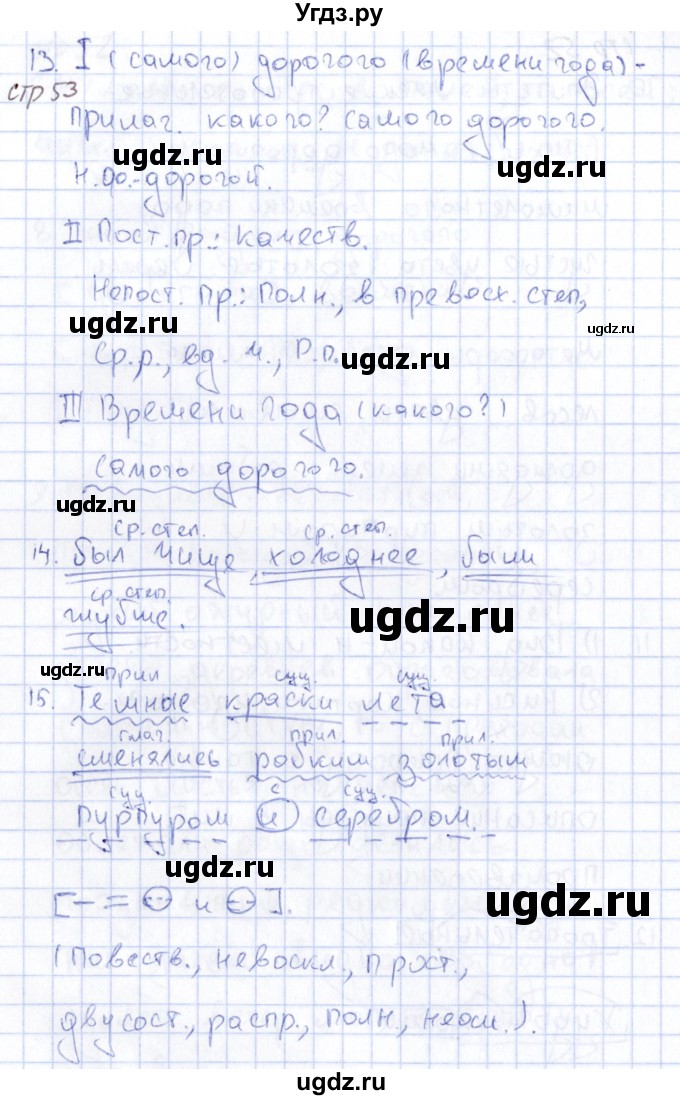 Угдз.ру
13. I (самого) дорогого (времени года) -
стр 53
прилаг. какого? самого дорогого.
ugdz.ru ugdz.ru
Н.ф.-дорогой.
II Пост.пр.: качеств.
ugdz.ru
Непост. пр.: полн., в превосх. степ,
ugdz.ru ugdz.ru
Ср.р., ед. ч., Р.п.
ugdz.ru
III Времени года (какого?)
самого дорогого.
ugdz.ru
ср. степ. ср. степ.
14. был чище, холоднее, были
ugdz.ru
ср. степ.
глубже.
ugdz.ru
ugdz.ru
прил сущ. сущ.
15. Темные краски лета
глаг. прил. прил.
сменялись робким золотым
сущ. с сущ.
пурпуром и серебром.
ugdz.ru
ugdz.ru
[– = и ].
(Повеств., невоскл., прост.,
двусост., распр., полн., неосл.).
ugdz.ru
ugdz.ru